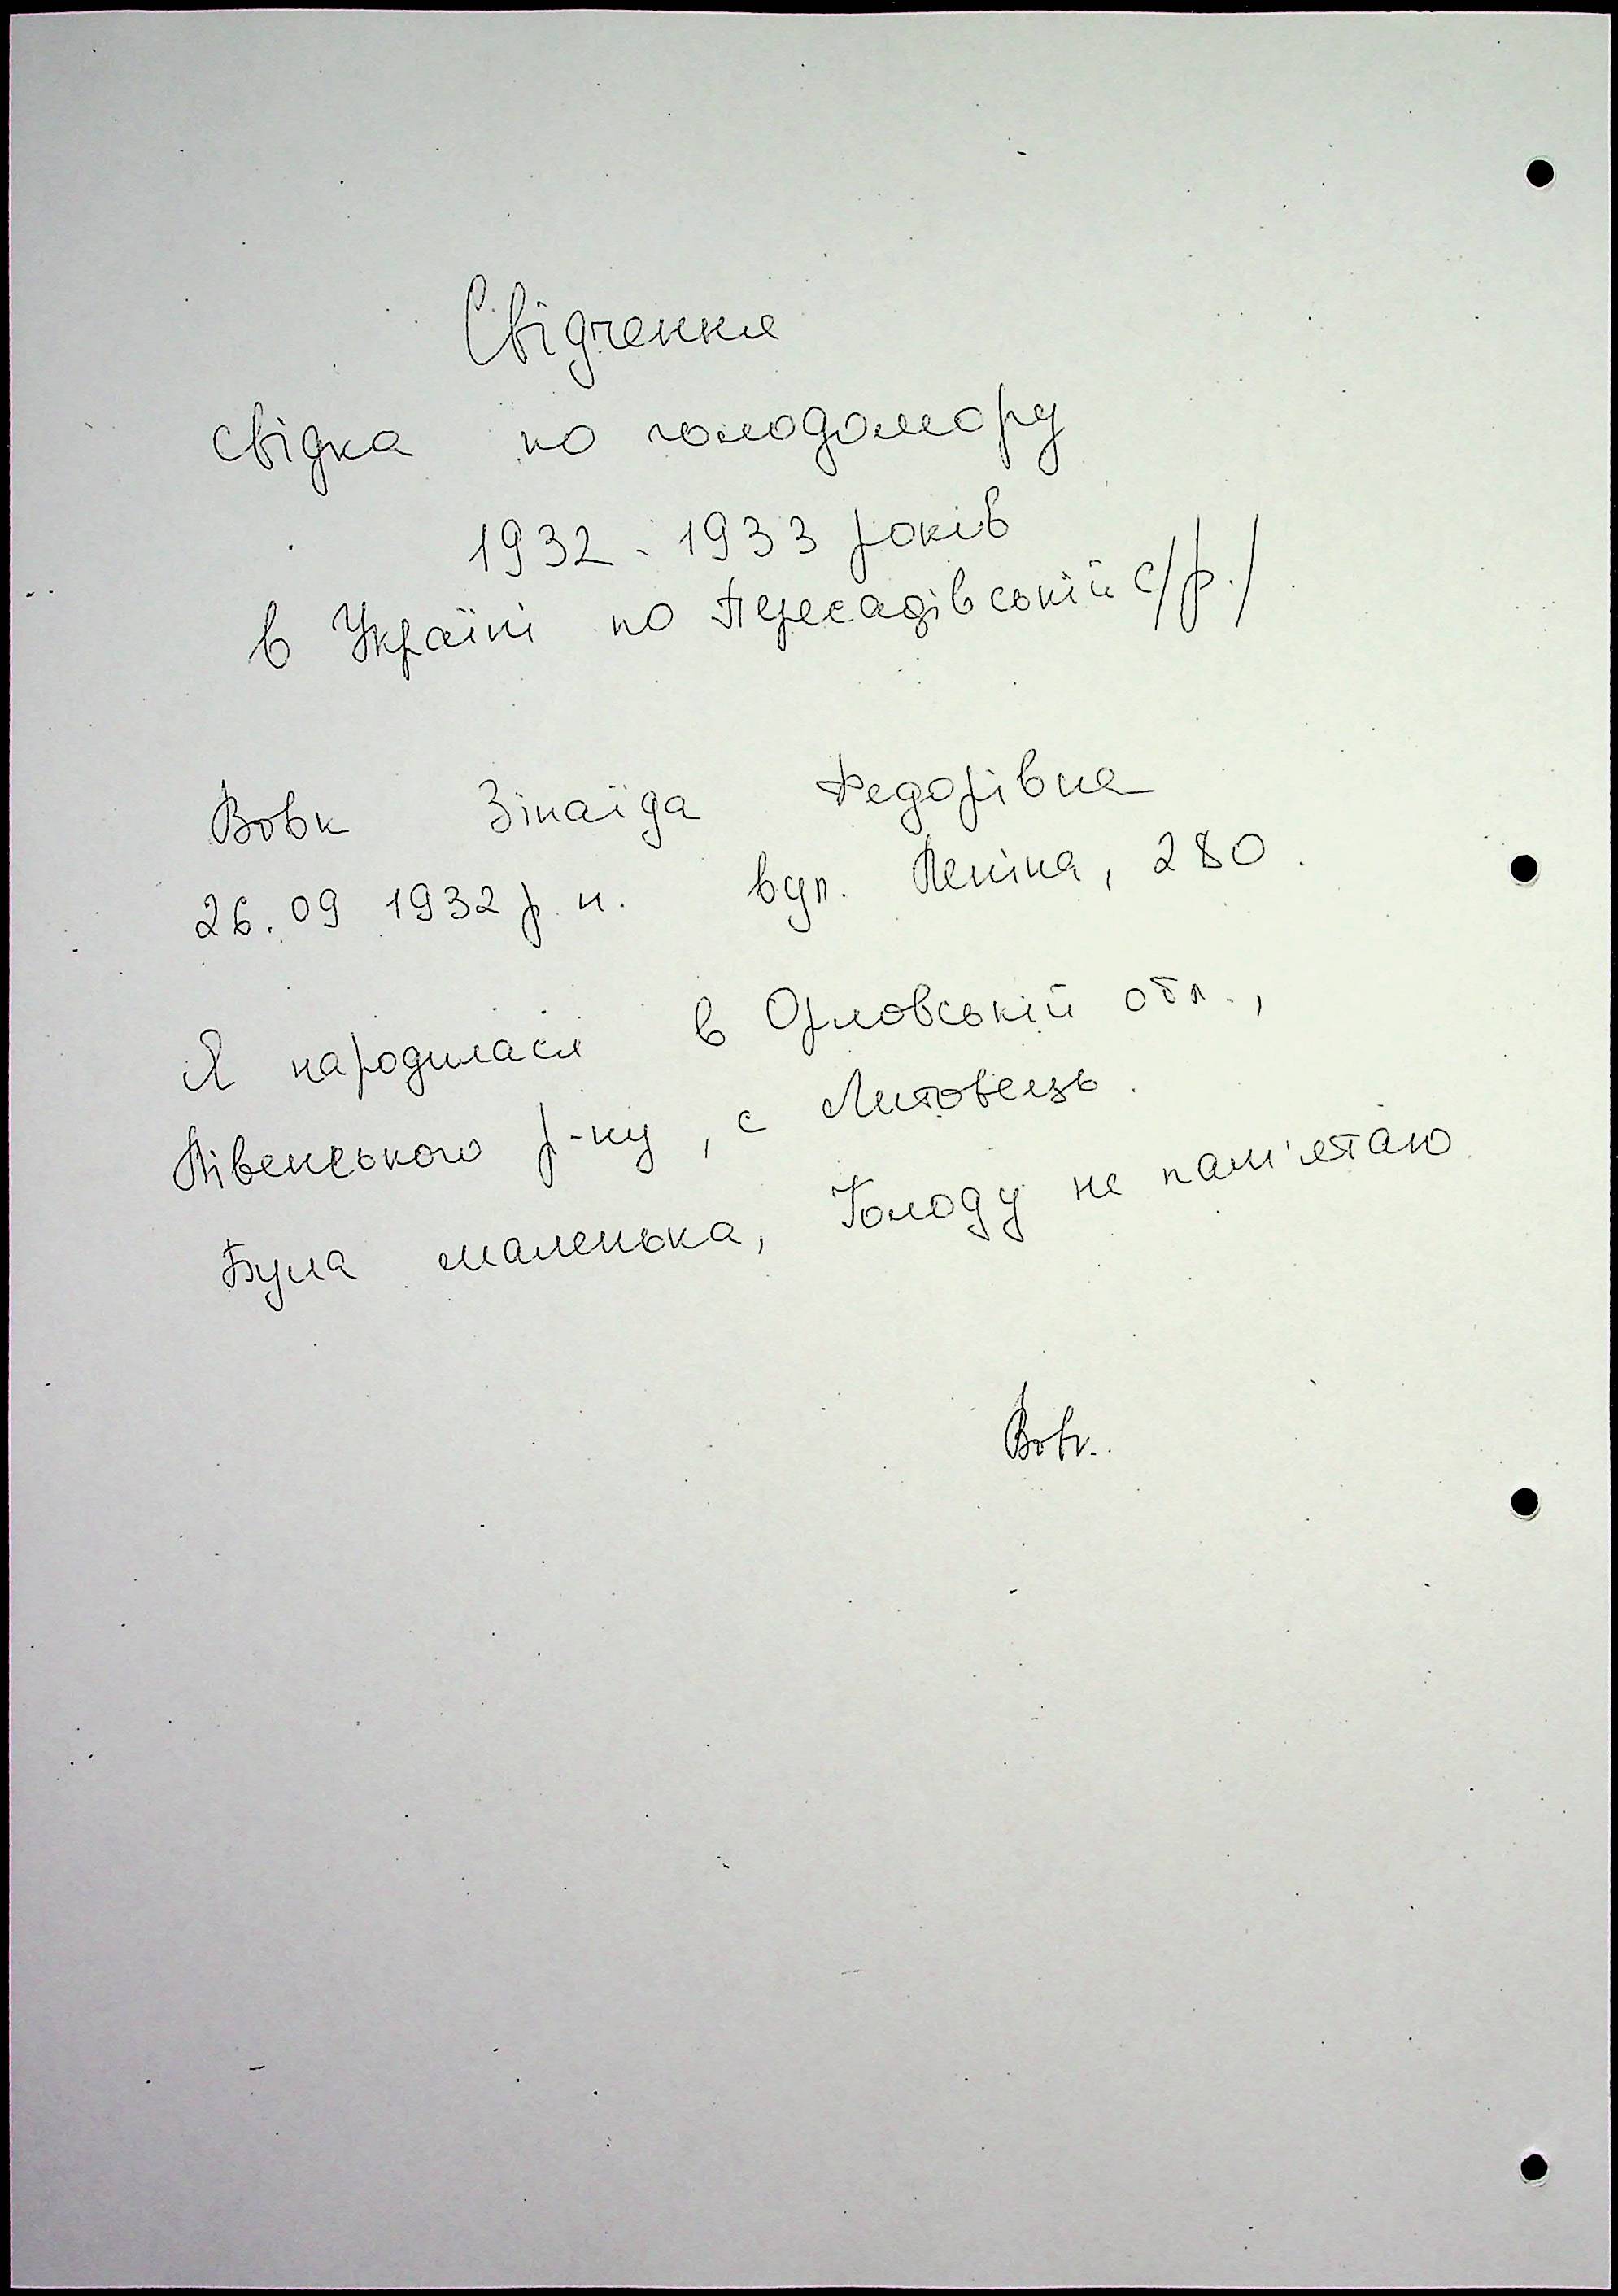 Свідчення
свідка по голодомору
1932-1933 років
в Україні по Пересадівській с/р./
Вовк Зінаїда Федорівна
26.09 1932 р н. вул. Леніна, 280.
Я народилася в Орловській обл.,
Лівенського р-ну, с Литовець.
Була маленька, Голоду не пам'ятаю
Вовк.